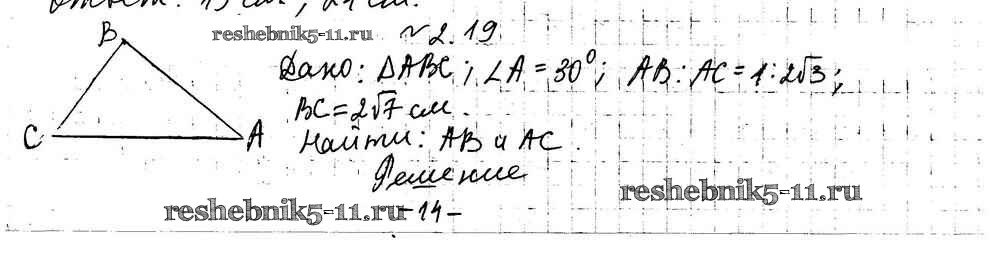 Ответ: 15 см, 21 см.
reshebnik5-11.ru №2.19
B
Дано: ΔABC; ∠A = 30°; AB:AC=1:2√3;
BC=2√7 см.
C A Найти: AB и AC.
Решение
reshebnik5-11.ru
reshebnik5-11.ru -14-